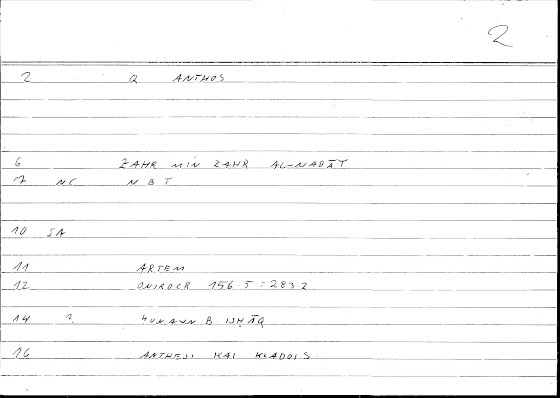 2
2 Q ANTHOS
6 ZAHR MIN ZAHR AL-NABĀT
7 NC NBT
10 SA
11 ARTEM
12 ONIROCR 156.5 = 283 2
14 1. ḤUNAYN B ISḤĀQ
16 ANTHESI KAI KLADOIS